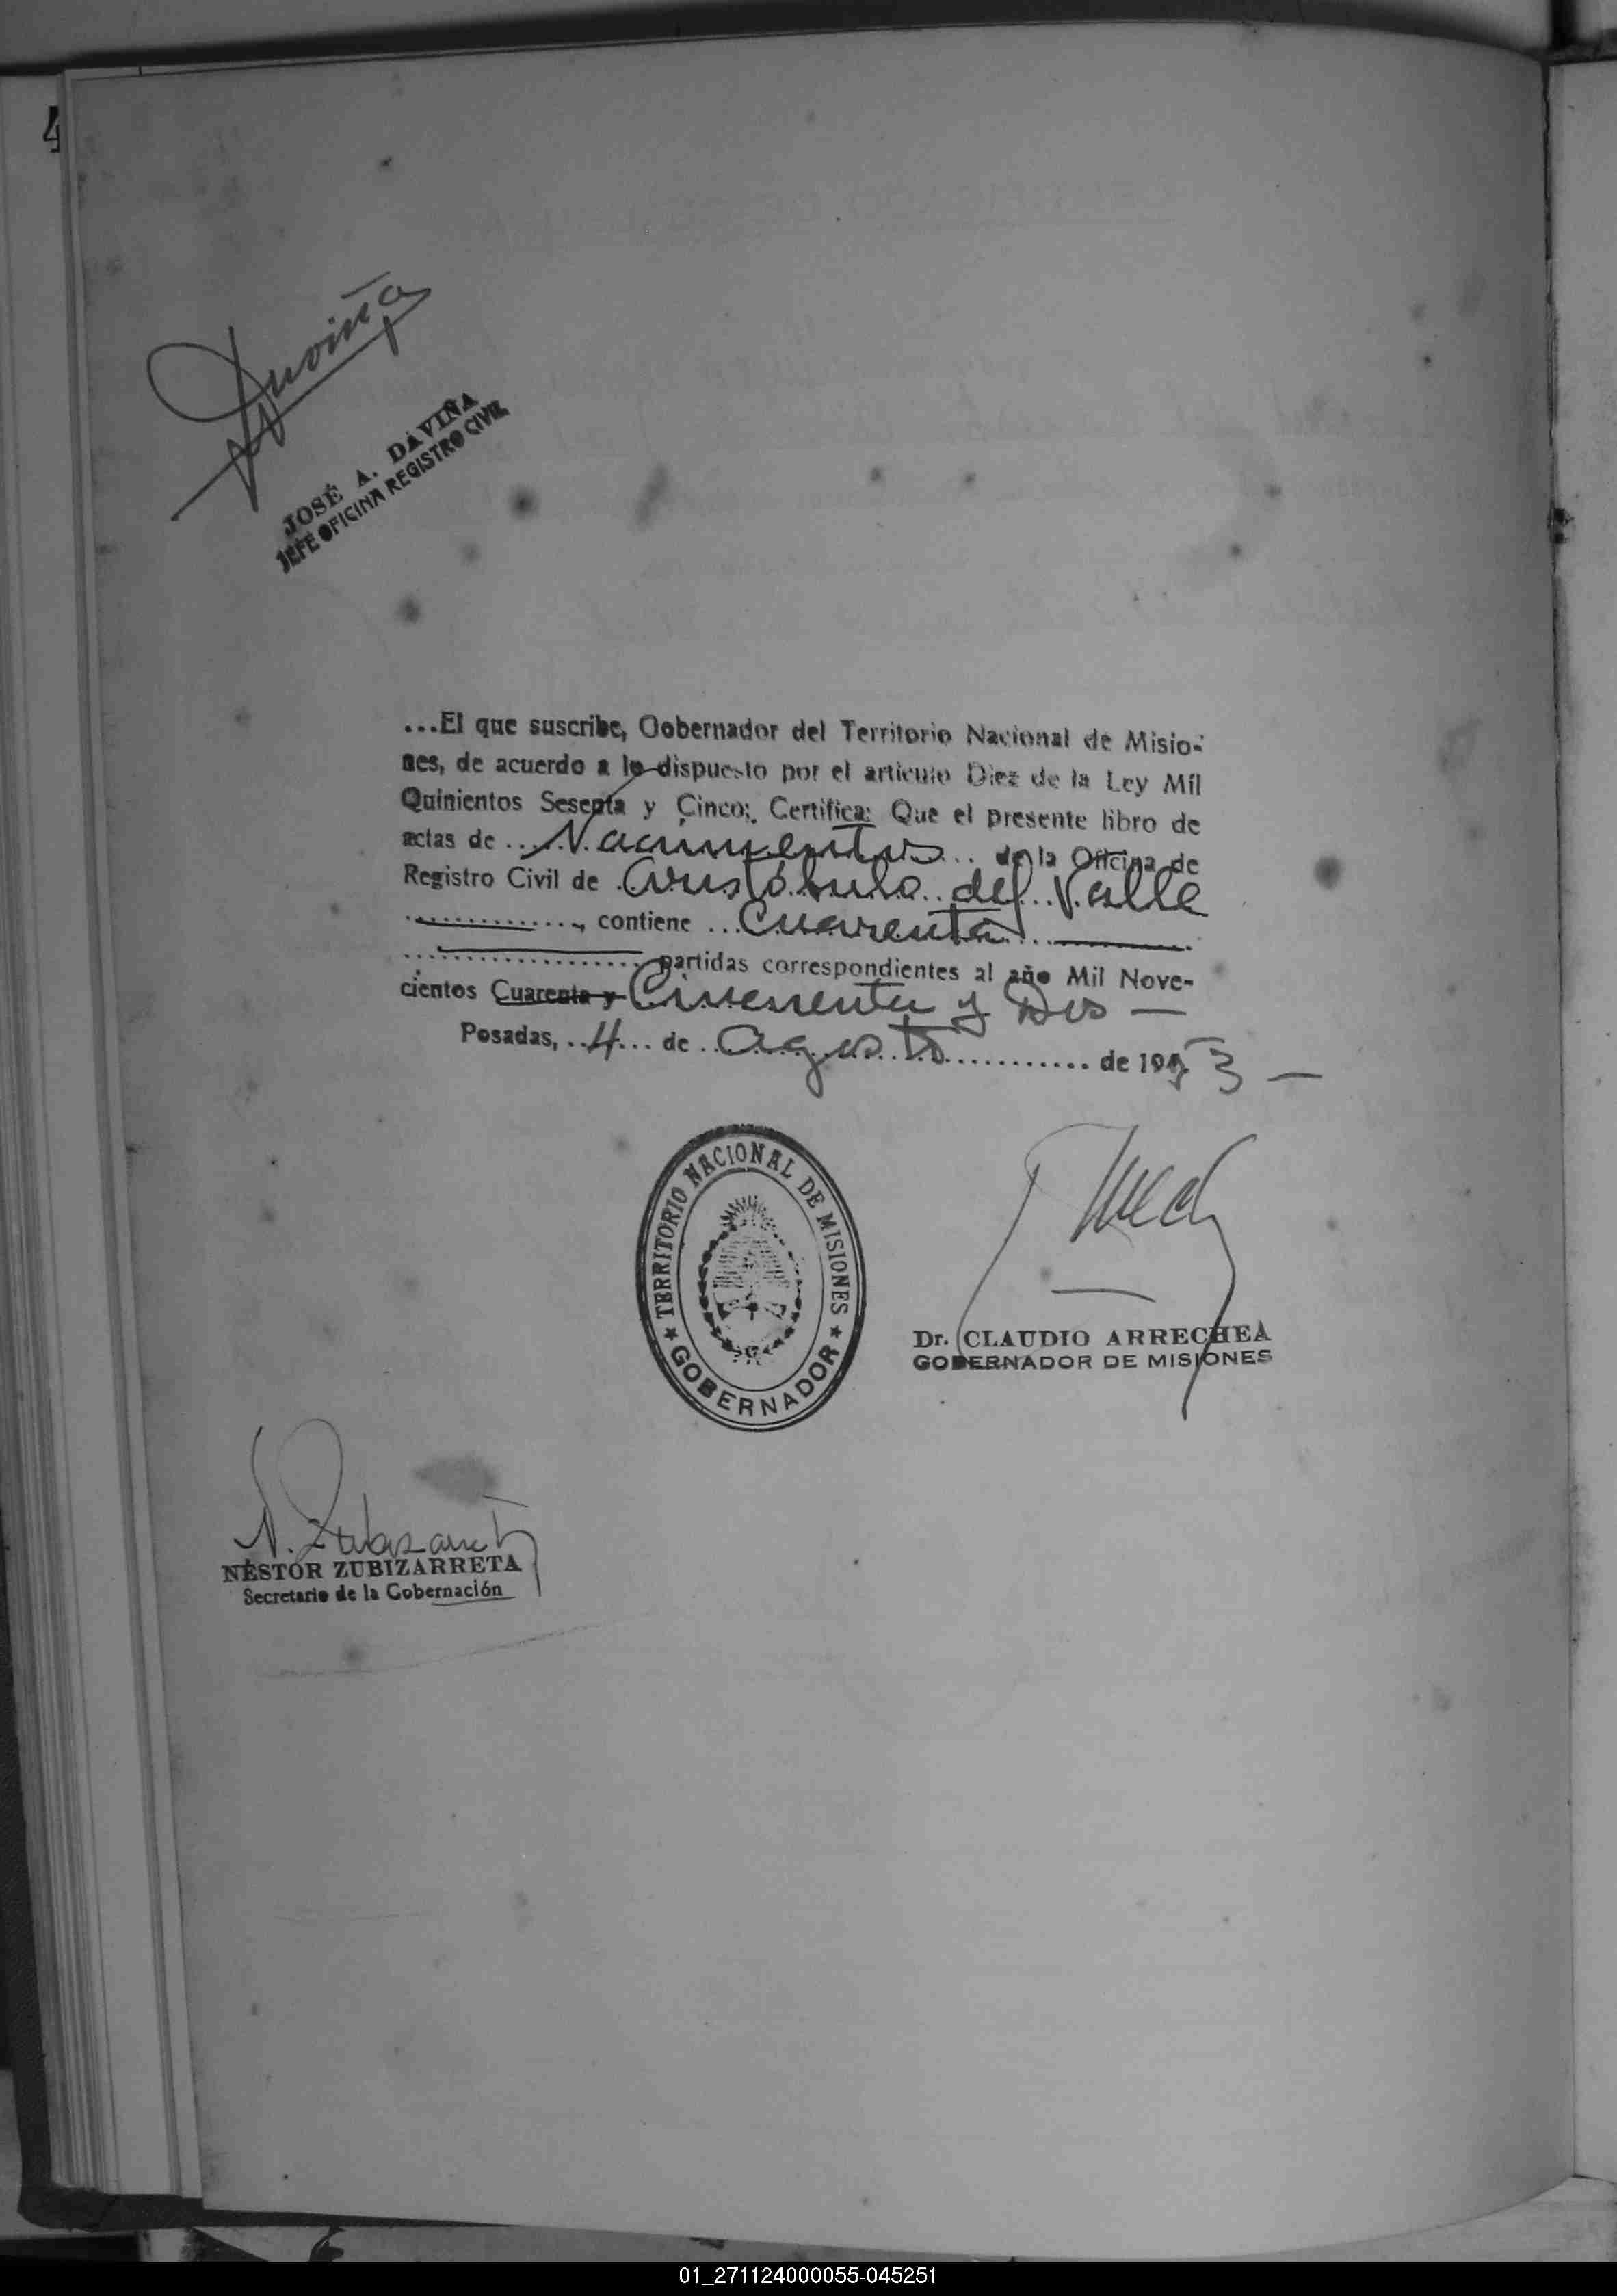 4
Daviña
JOSÉ A. DAVIÑA
JEFE OFICINA REGISTRO CIVIL
...El que suscribe, Gobernador del Territorio Nacional de Misio-
nes, de acuerdo a lo dispuesto por el artículo Diez de la Ley Mil
Quinientos Sesenta y Cinco; Certifica: Que el presente libro de
actas de ... Nacimientos ... de la Oficina de
Registro Civil de Aristóbulo del Valle
............., contiene ... Cuarenta ...
................... partidas correspondientes al año Mil Nove-
cientos Cuarenta y Cincuenta y Dos —
Posadas, ..4... de ..agosto............ de 1953 —
TERRITORIO NACIONAL DE MISIONES
★ GOBERNADOR ★
Dr. CLAUDIO ARRECHEA
GOBERNADOR DE MISIONES
N. Zubizarreta
NÉSTOR ZUBIZARRETA
Secretario de la Gobernación
01_271124000055-045251